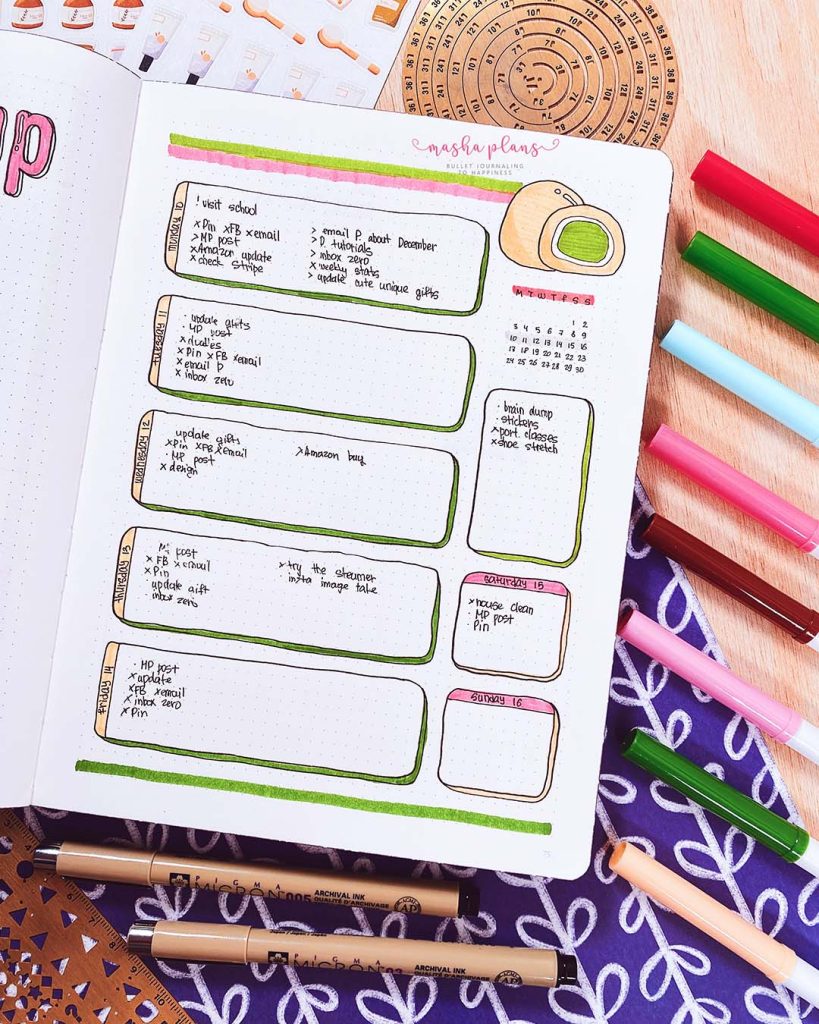 masha plans
BULLET JOURNALING
TO HAPPINESS
monday 10
! visit school
x Pin x FB x email
> MP post
x Amazon update
x check stripe
> email P. about December
> P. tutorials
> inbox zero
x weekly stats
> update cute unique gifts
M T W T F S S
1 2
3 4 5 6 7 8 9
10 11 12 13 14 15 16
17 18 19 20 21 22 23
24 25 26 27 28 29 30
tuesday 11
· update gifts
· MP post
x Pin x FB x email
x email P
x inbox zero
· brain dump
· stickers
x port. classes
x shoe stretch
wednesday 12
update gifts
x Pin x FB x email
· MP post
x design
> Amazon buy
thursday 13
post
x FB x email
x Pin
· update gift
· inbox zero
x try the steamer
insta image take
saturday 15
x house clean
· MP post
· Pin
friday 14
· MP post
x update
x FB x email
x inbox zero
x Pin
sunday 16
PIGMA
MICRON 005
ARCHIVAL INK
QUALITÉ D'ARCHIVAGE
AP
PIGMA
MICRON
ARCHIVAL INK
QUALITÉ D'ARCHIVAGE